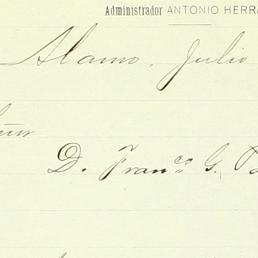 Administrador ANTONIO HERRA
Alamo, Julio
D. Franco G.